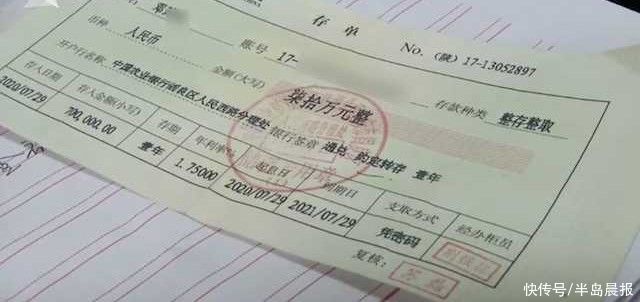 存 单
No. (陕) 17-13052897
币种 人民币 账号 17-
开户行名称: 中国农业银行阎良区人民西路分理处 金额(大写) 柒拾万元整 存款种类 整存整取
银行签章 通兑 约定转存 壹年
存入日期 存入金额(小写) 存期 年利率% 起息日 到期日 支取方式 经办柜员
2020/07/29 700,000.00 壹年 1.75000 2020/07/29 2021/07/29 凭密码
复核:
快传号/半岛晨报